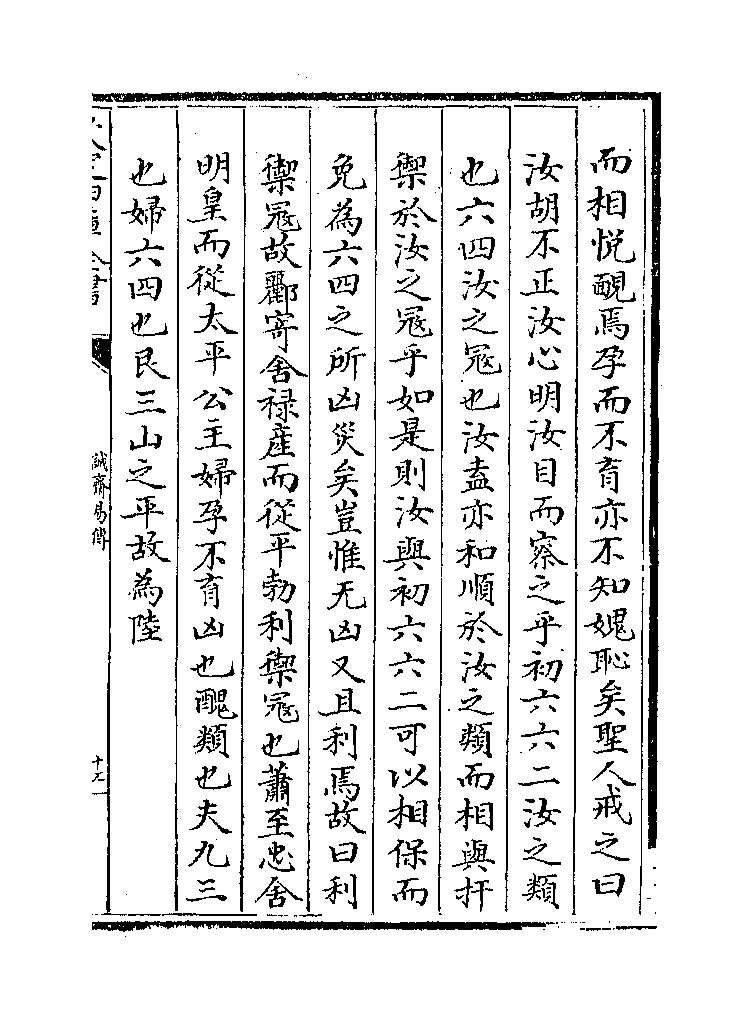 而相悦靦焉孕而不育亦不知媿恥矣聖人戒之曰
汝胡不正汝心明汝目而察之乎初六六二汝之類
也六四汝之冦也汝盍亦和順於汝之類而相與扞
禦於汝之冦乎如是則汝與初六六二可以相保而
免為六四之所凶災矣豈惟无凶又且利焉故曰利
禦冦故酈寄舍禄産而從平勃利禦冦也蕭至忠舍
明皇而從太平公主婦孕不育凶也醜類也夫九三
也婦六四也艮三山之平故為陸
誠齋易傳